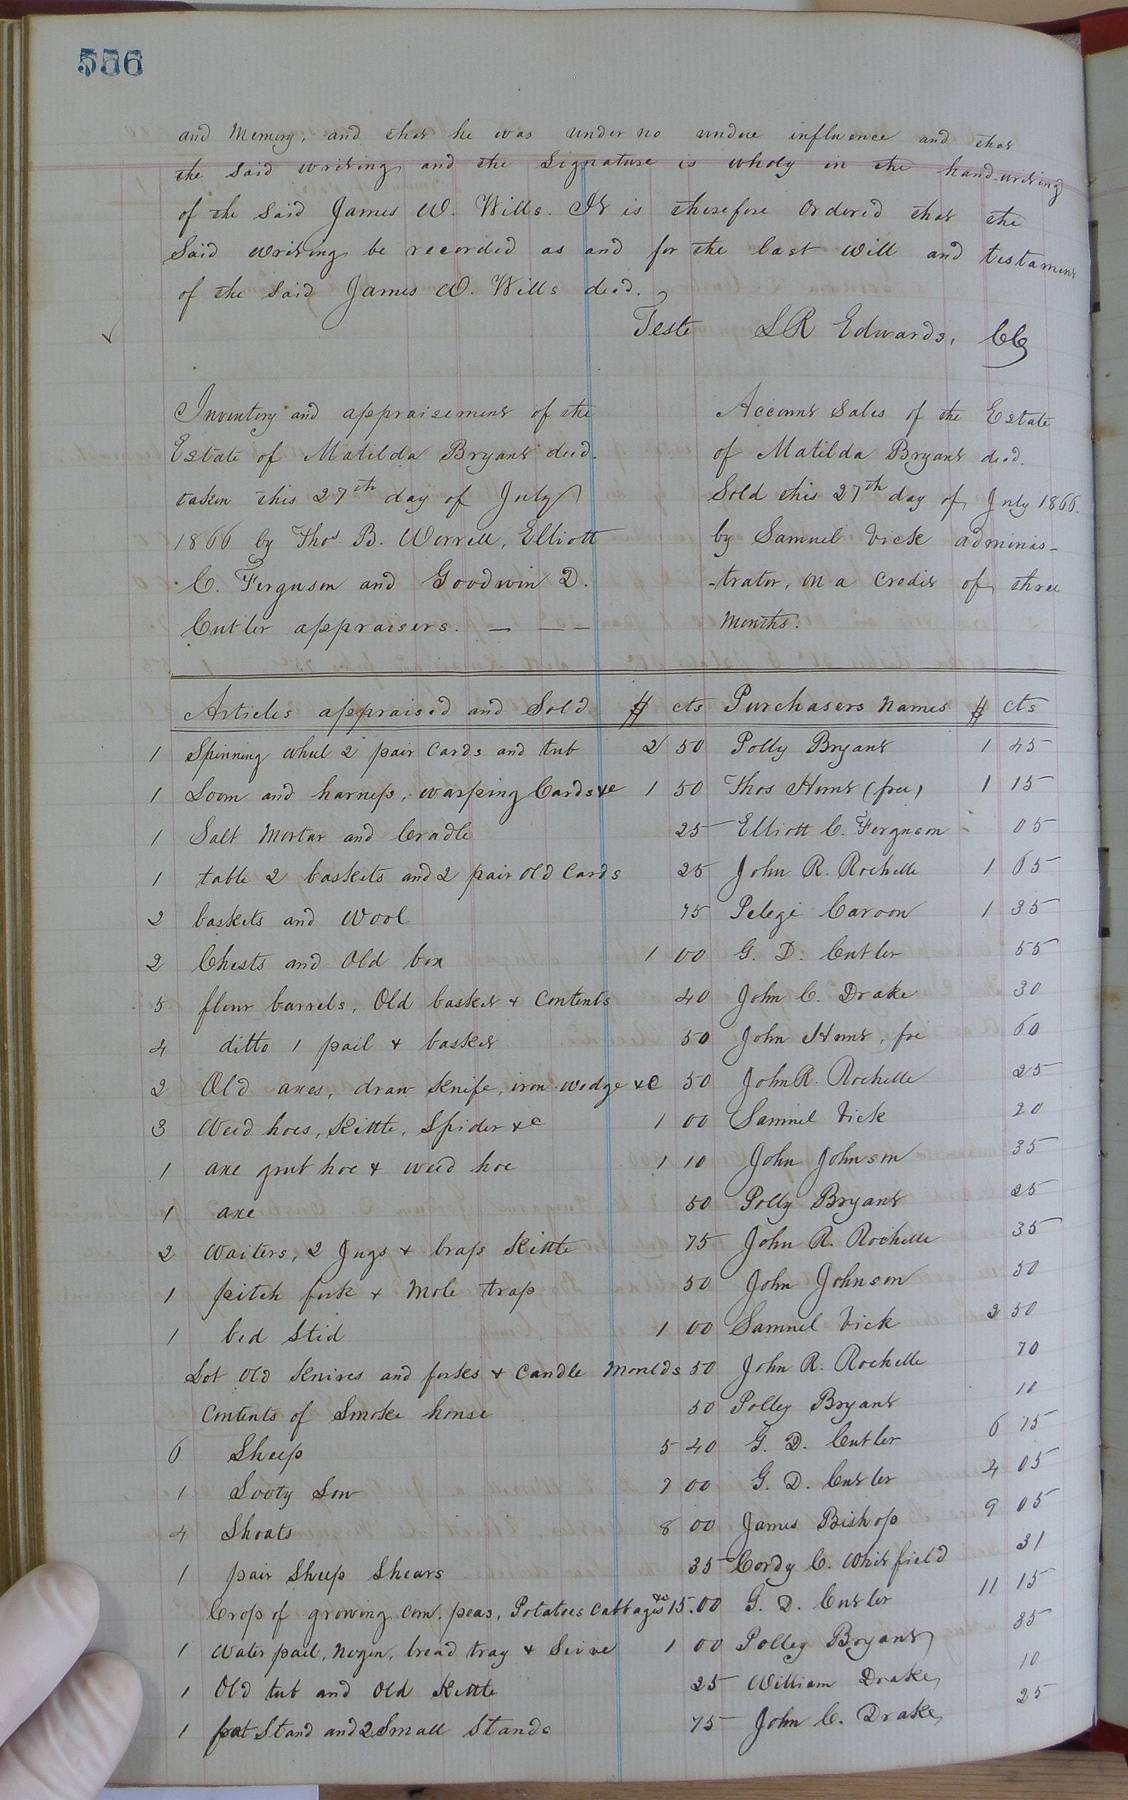 556
and Memory, and that he was under no undue influence and that
the said writing and the Signature is wholy in the hand-writing
of the said James W. Wills. It is therefore Ordered that the
Said writing be recorded as and for the last will and testament
of the said James W. Wills decd.
Teste L R Edwards, CC
Inventory and appraisement of the
Estate of Matilda Bryant decd.
taken this 27th day of July
1866 by Thos B. Worrell, Elliott
C. Ferguson and Goodwin D.
Cutler appraisers. — — —
Account Sales of the Estate
of Matilda Bryant decd.
Sold this 27th day of July 1866.
by Samuel Vick adminis-
-trator, on a credit of three
months.
Articles appraised and Sold $ cts Purchasers Names $ cts
1 Spinning wheel 2 pair Cards and tub 2 50 Polly Bryant 1 45
1 Loom and harness, warping Cards &c 1 50 Thos Hunt (free) 1 15
1 Salt Mortar and Cradle 25 Elliott C. Ferguson 05
1 table 2 baskets and 2 pair old Cards 25 John R. Rochelle 1 65
2 baskets and Wool 75 Pelegi Caroon 1 35
2 Chests and Old box 1 00 G. D. Cutler 55
5 flour barrels, Old basket & Contents 40 John C. Drake 30
4 ditto 1 pail & basket 50 John Hunt, free 60
2 Old axes, draw Knife, iron wedge &c 50 John R. Rochelle 25
3 Weed hoes, Kittle, Spider &c 1 00 Samuel Vick 20
1 axe grub hoe & weed hoe 1 10 John Johnson 35
1 axe 50 Polly Bryant 25
2 Waiters, 2 Jugs & brass Kittle 75 John R. Rochelle 35
1 pitch fork & Mole trap 50 John Johnson 50
1 bed Stid 1 00 Samuel Vick 2 50
Lot Old Knives and forks & Candle Moulds 50 John R. Rochelle 70
Contents of Smoke house 50 Polley Bryant 10
6 Sheep 5 40 G. D. Cutler 6 75
1 Sooty Sow 7 00 G. D. Cutler 4 05
4 Shoats 8 00 James Bishop 9 05
1 pair Sheep Shears 35 Cordy C. Whitfield 31
Crop of growing corn, peas, Potatoes Cabbages &c 15.00 G. D. Cutler 11 15
1 Water pail, Nogin, bread tray & Seive 1 00 Polley Bryant 35
1 Old tub and Old Kittle 25 William Drake 10
1 fat Stand and 2 Small Stands 75 John C. Drake 25